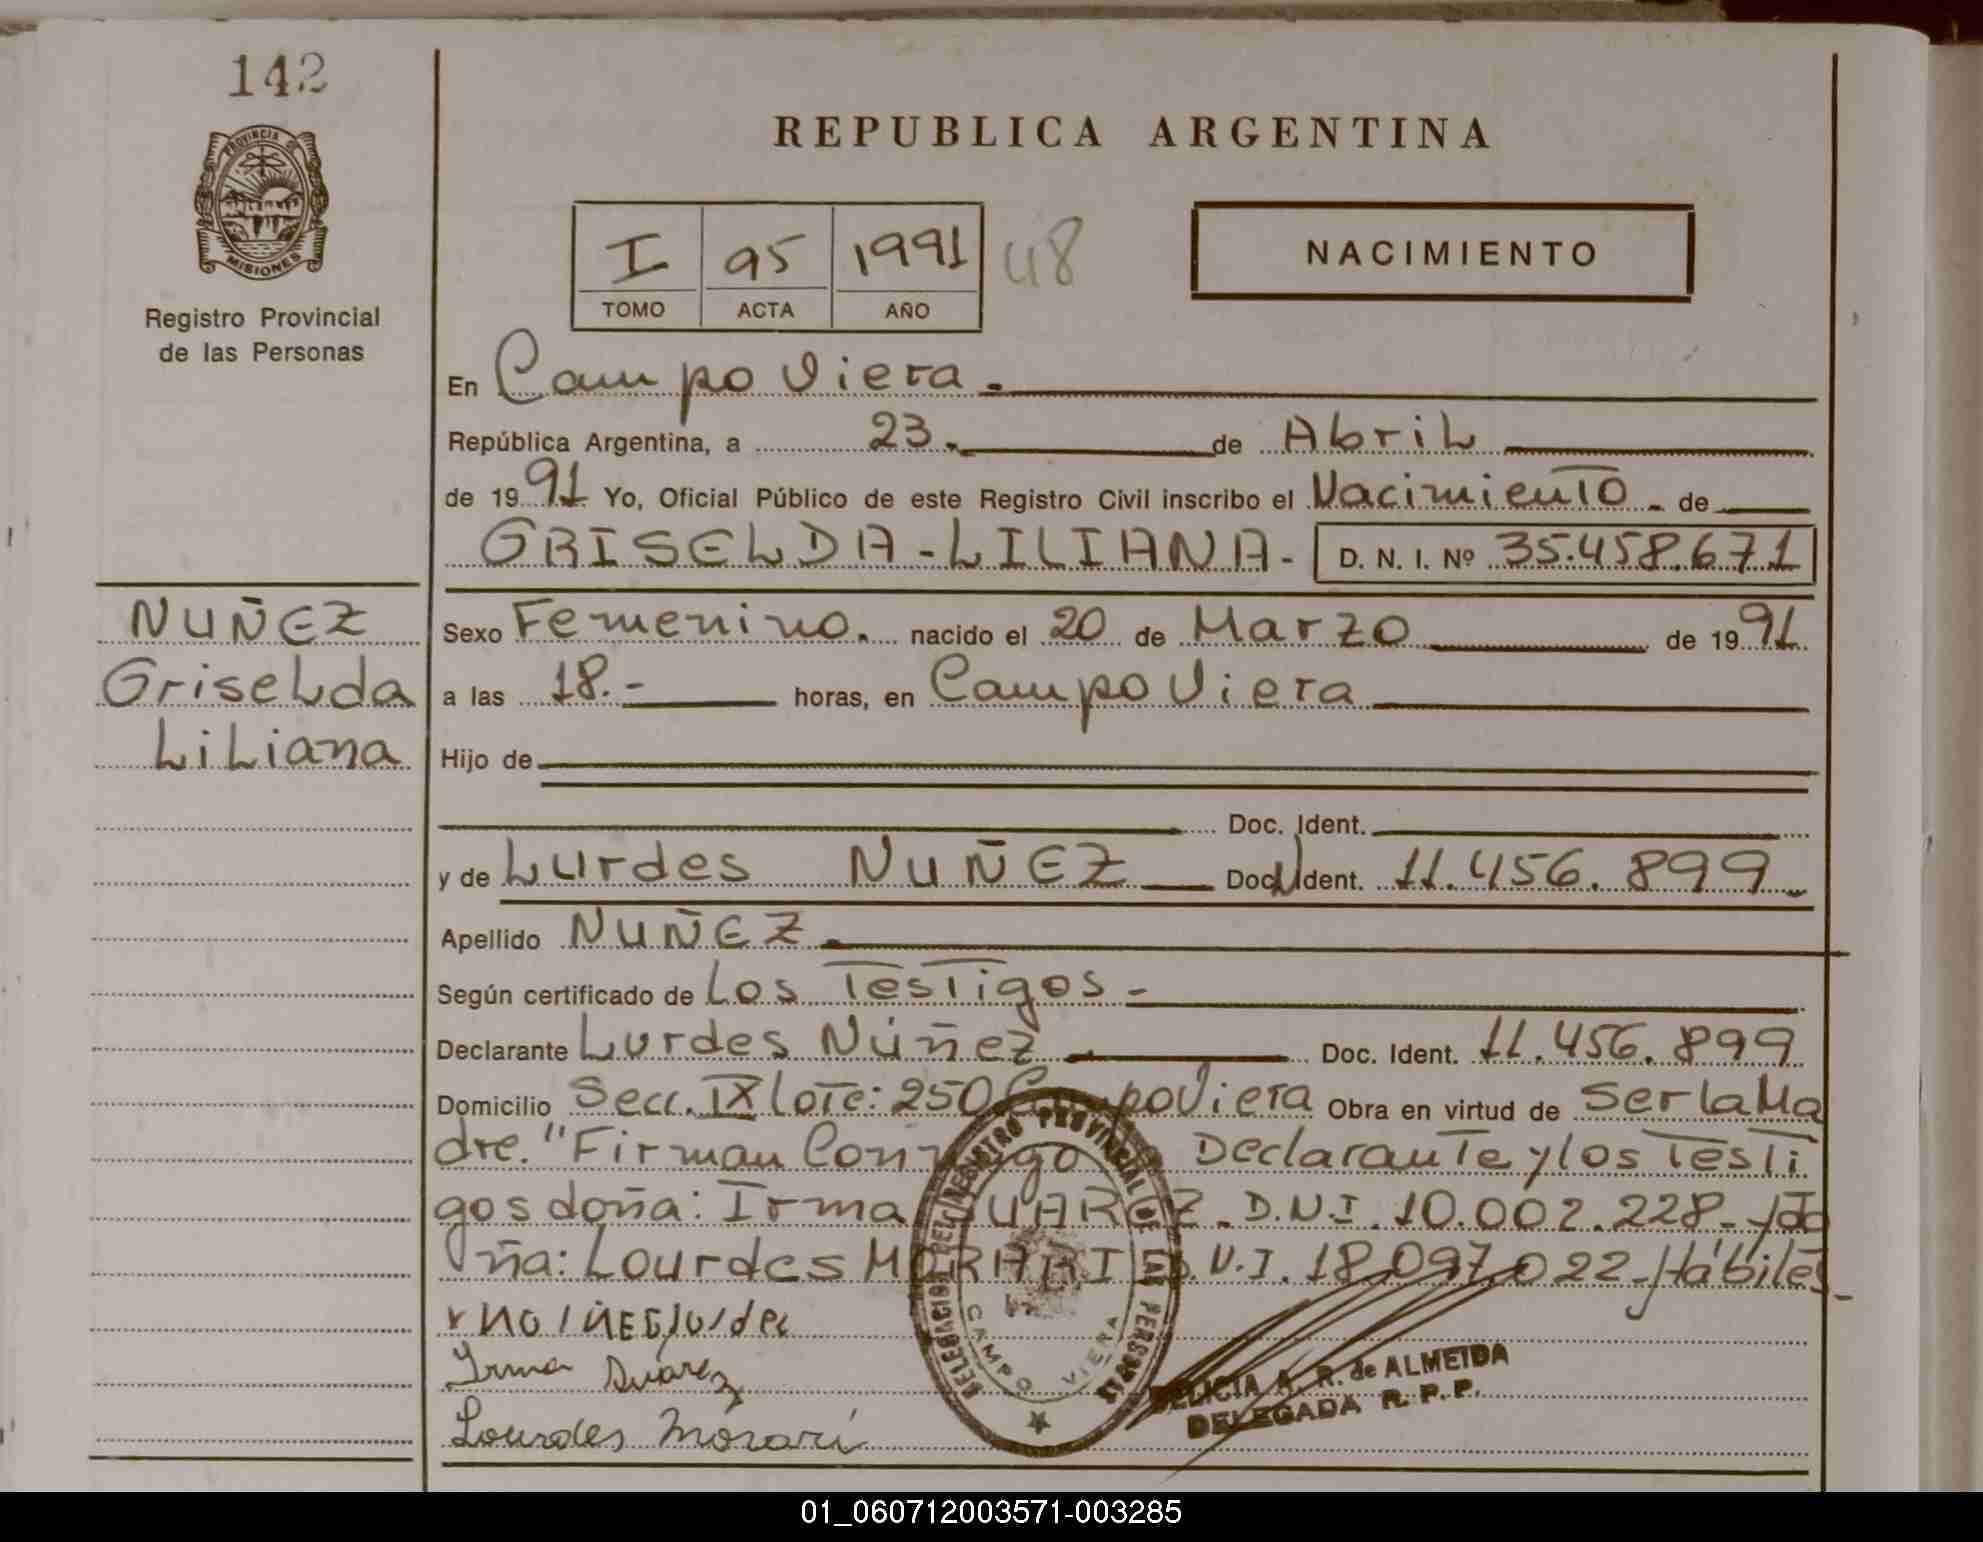 142
REPUBLICA ARGENTINA
PROVINCIA DE
MISIONES
Registro Provincial
de las Personas
I 95 1991 48
TOMO ACTA AÑO
NACIMIENTO
En Campo Viera.
República Argentina, a 23. de Abril
de 1991 Yo, Oficial Público de este Registro Civil inscribo el Nacimiento de
GRISELDA-LILIANA- D. N. I. Nº 35.458.671
NUÑEZ
Griselda
Liliana
Sexo Femenino. nacido el 20 de Marzo de 1991
a las 18.- horas, en Campo Viera
Hijo de
Doc. Ident.
y de Lurdes NUÑEZ Doc. Ident. 11.456.899
Apellido NUÑEZ.
Según certificado de Los Testigos-
Declarante Lurdes Núñez Doc. Ident. 11.456.899
Domicilio Secc. IX lote: 250 Campo Viera Obra en virtud de Ser la Ma
dre. "Firman Conmigo la Declarante y los Testi
gos doña: Irma SUAREZ. D.N.I. 10.002.228- y do
ña: Lourdes MORARI D.N.I. 18.097.022- Hábiles
Irma Suarez
Lourdes Morari
DELEGACION DEL REGISTRO PROVINCIAL DE LAS PERSONAS
CAMPO VIERA
DELICIA A. R. de ALMEIDA
DELEGADA R. P. P.
01_060712003571-003285